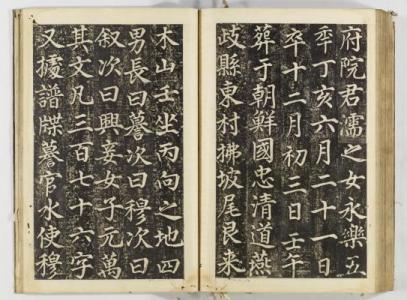 府院君濡之女永樂五
年丁亥六月二十一日
卒十二月初三日壬午
葬于朝鮮國忠清道燕
歧縣東村拂坡尾艮来
木山壬坐丙向之地四
男長曰䕫次曰穆次曰
叙次曰興妾女子元萬
其文凡三百七十六字
又據譜牒䕫官水使穆